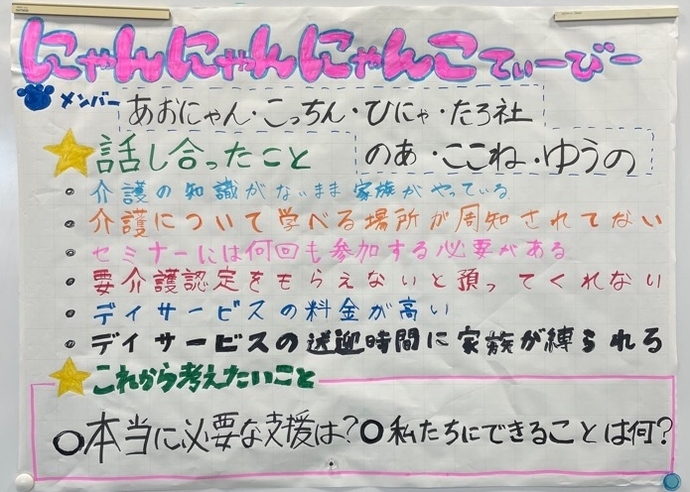 にゃんにゃんにゃんこてぃーびー
メンバー あおにゃん・こっちん・ひにゃ・たろ社
のあ・ここね・ゆうの
話し合ったこと
介護の知識がないまま家族がやっている
介護について学べる場所が周知されてない
セミナーには何回も参加する必要がある
要介護認定をもらえないと預ってくれない
デイサービスの料金が高い
デイサービスの送迎時間に家族が縛られる
これから考えたいこと
○本当に必要な支援は?○私たちにできることは何?